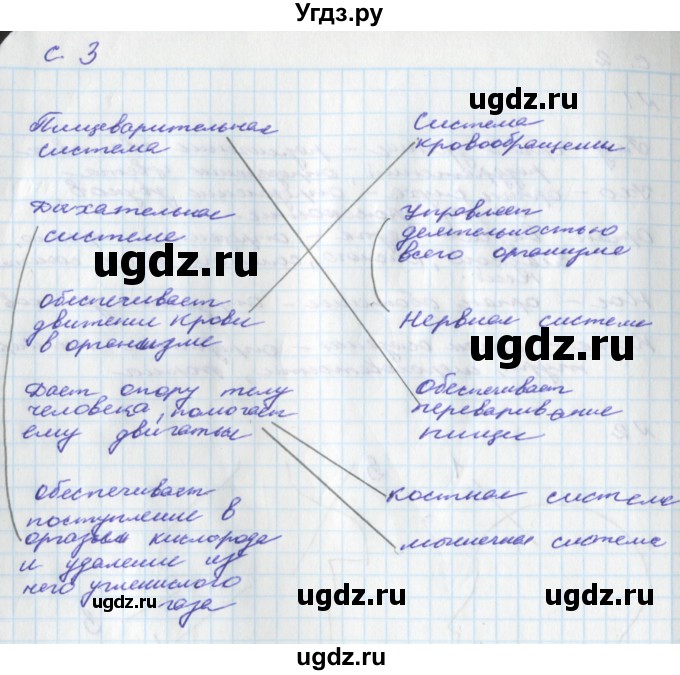 Угдз.ру
с. 3
Пищеварительная
система
Дыхательная
система
обеспечивает
движение крови
в организме
Дает опору телу
человека, помогает
ему двигаться
Обеспечивает
поступление в
организм кислорода
и удаление из
него углекислого
газа
Система
кровообращения
Управляет
деятельностью
всего организма
Нервная система
Обеспечивает
переваривание
пищи
костная система
мышечная система
ugdz.ru
ugdz.ru
ugdz.ru
ugdz.ru
ugdz.ru
ugdz.ru
ugdz.ru